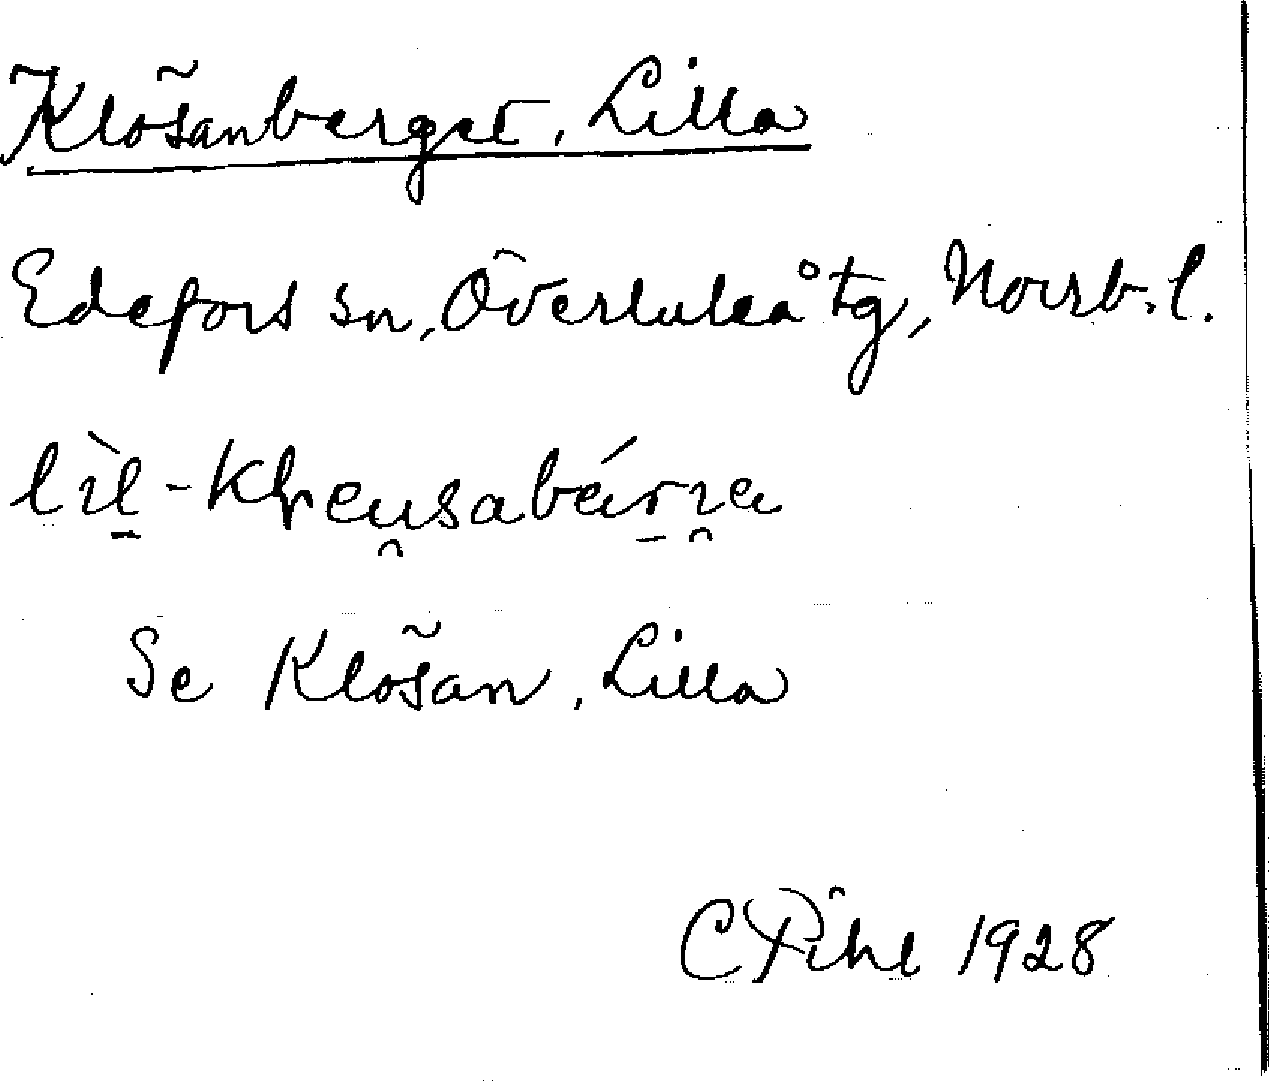 Klösanberget, Lilla
Edefors sn, Överluleå tg, Norrb. l.
lìl-kleu̯sabár̠ɪa
Se Klösan, Lilla
C Pihl 1928